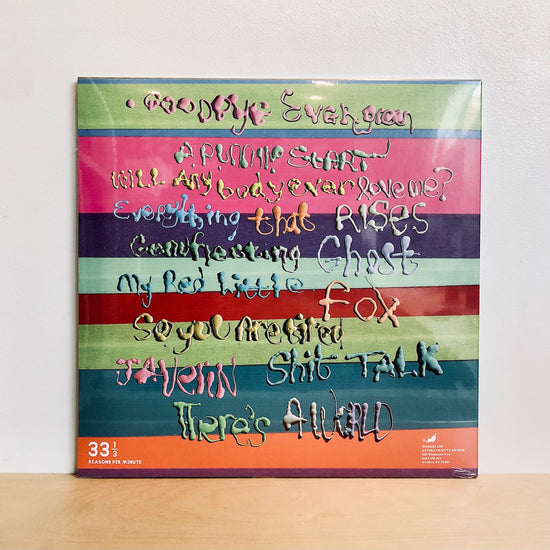 Goodbye Evergreen
A Running Start
Will Anybody ever love me?
Everything that RISES
Genuflecting Ghost
My Red Little
Fox
So you Are tired
JAVELIN Shit TALK
There's A World
33 1/3
REASONS PER MINUTE
ASTHMATIC KITTY RECORDS